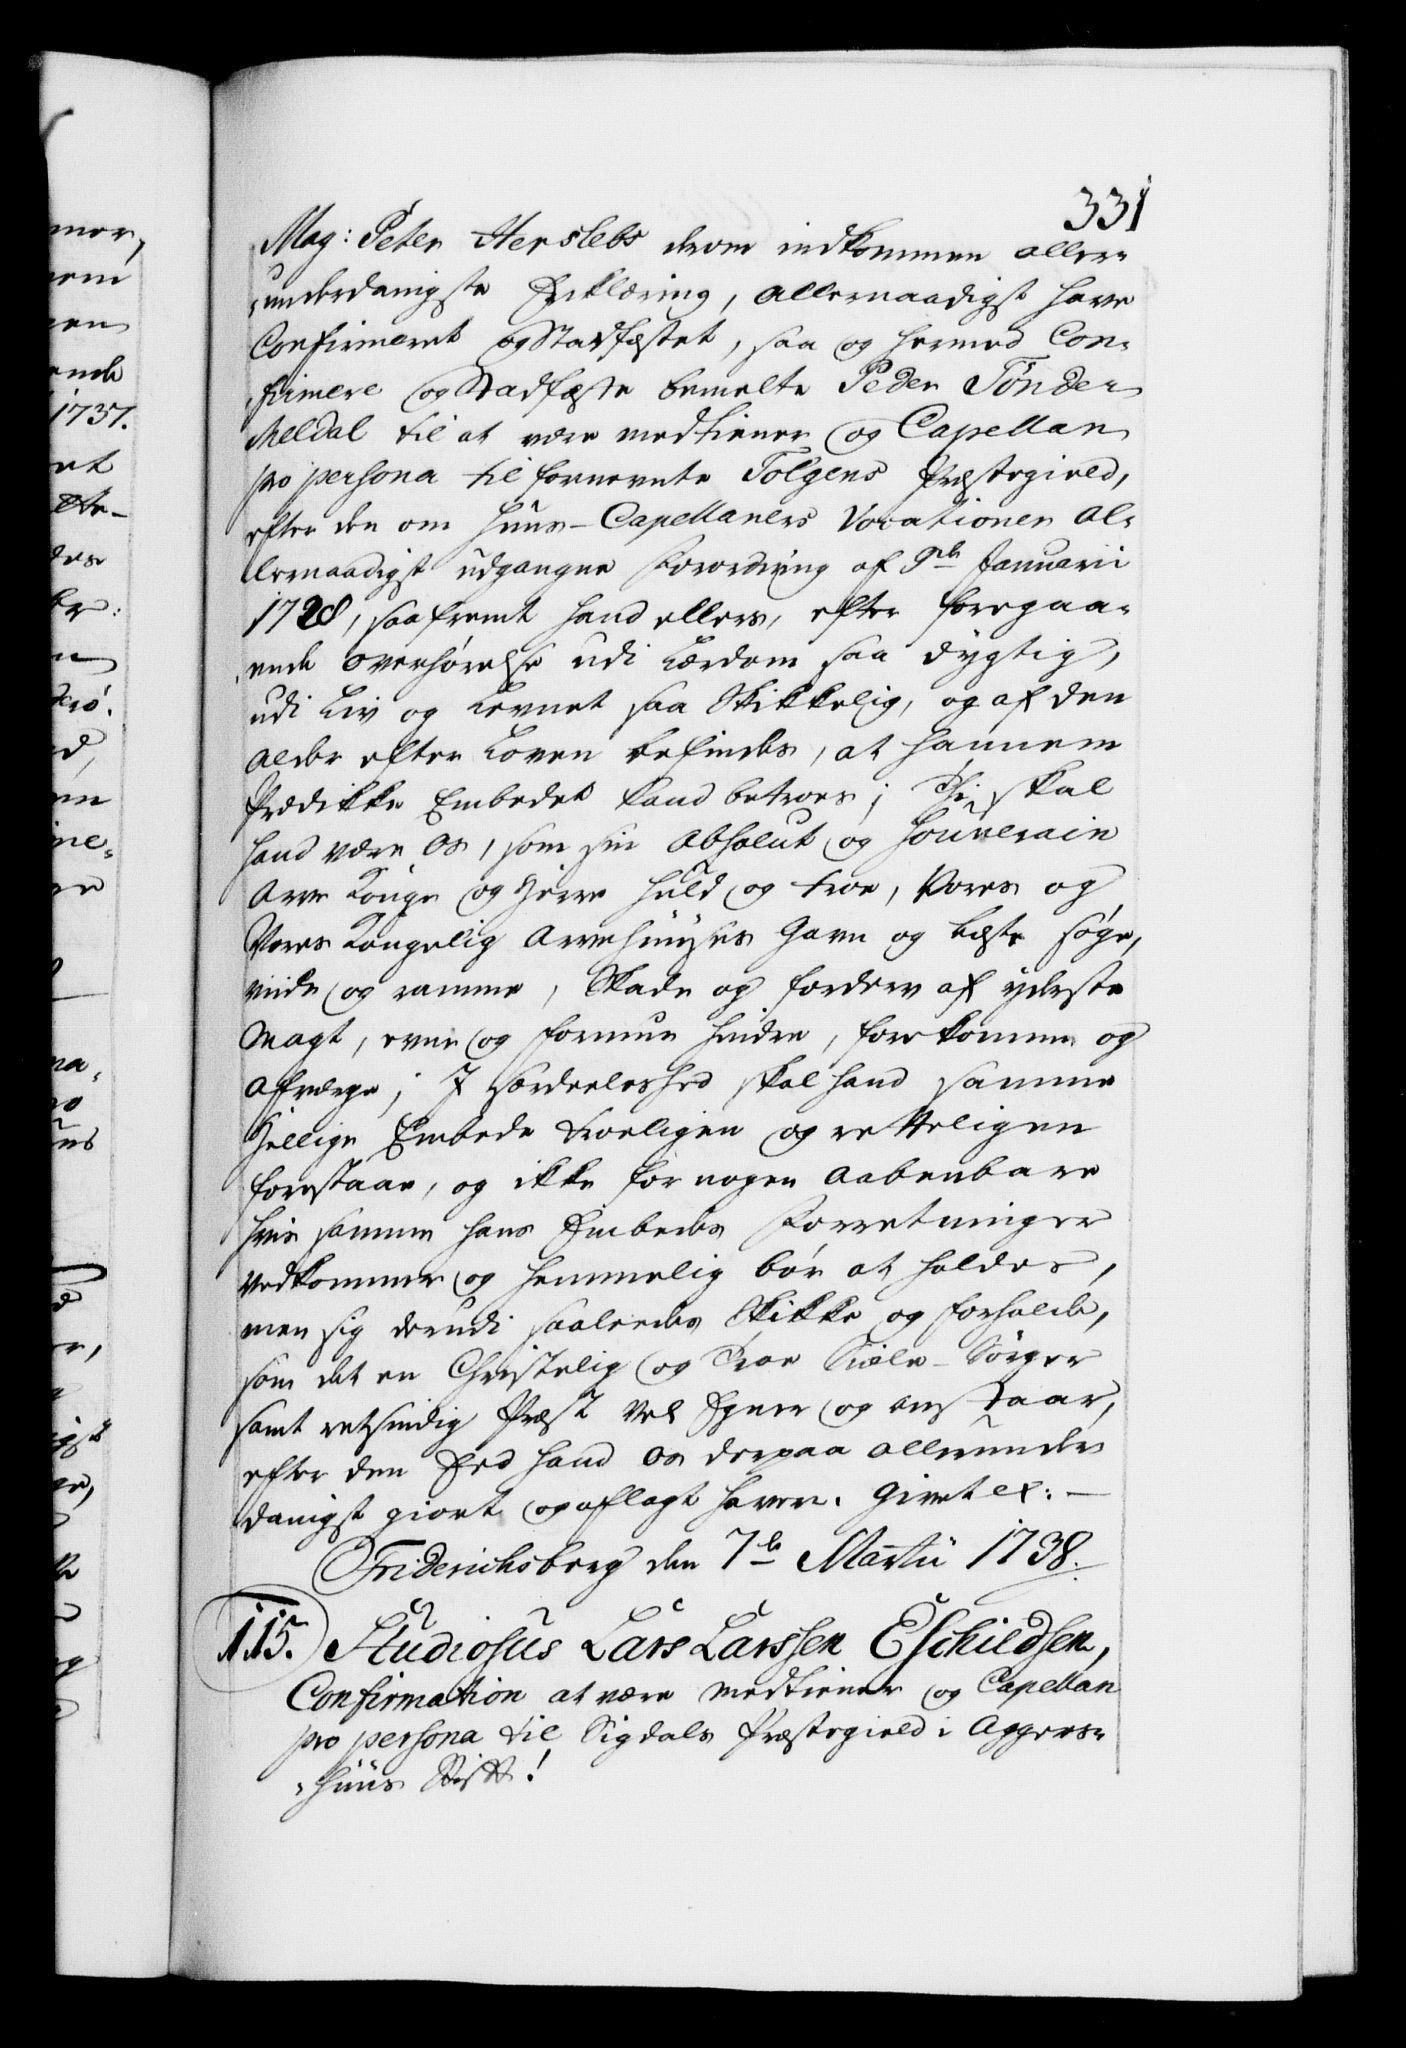 331
Mag: Peter Herslebs derom indkommen aller-
underdanigste Erklæring, allernaadigst have
Confirmeret og Stadfæstet, saa og hermed Con-
firmere og Stadfæste bemelte Peder Tønder
Meldal til at være medtiener og Capellan
pro persona til fornevnte Tolgens Præstegield,
efter den om Huus-Capellaners Vocationer al-
lernaadigst udgangne Forordning af 9de Januarii
1728, saafremt hand ellers, efter foregaa-
ende overhørelse udi Lærdom saa dygtig,
udi Liv og Levnet saa Skikkelig, og af den
alder efter Loven befindes, at hannem
Prædikke Embedet kand betroes; Thi skal
hand være Os, som sin absolut og Souverain
Arve Konge og Herre huld og troe, Vores og
Vores Kongelig Arvehuuses Gavn og beste søge,
viide og ramme, Skade og forderv af yderste
Magt, evne og formue hindre, forekomme og
afværge; I særdeeleshed skal hand samme
Hellige Embede troeligen og retteligen
forestaae, og ikke for nogen aabenbare
hvis samme hans Embedes Forretninger
vedkommer og hemmelig bør at holdes,
men sig derudi saaledes Skikke og forholde,
som det en Christelig og Troe Siæle-Sørger
samt retsindig Præst vel Egner og anstaar,
efter den Eed hand Os derpaa allerunder
danigst giort og aflagt haver. Givet ec:
Friderichsberg den 7de Martii 1738.
115. Studiosus Lars Larssen Eschildsen,
Confirmation at være Medtiener og Capellan
pro persona til Sigdals Præstegield i Aggers-
huus Stift!